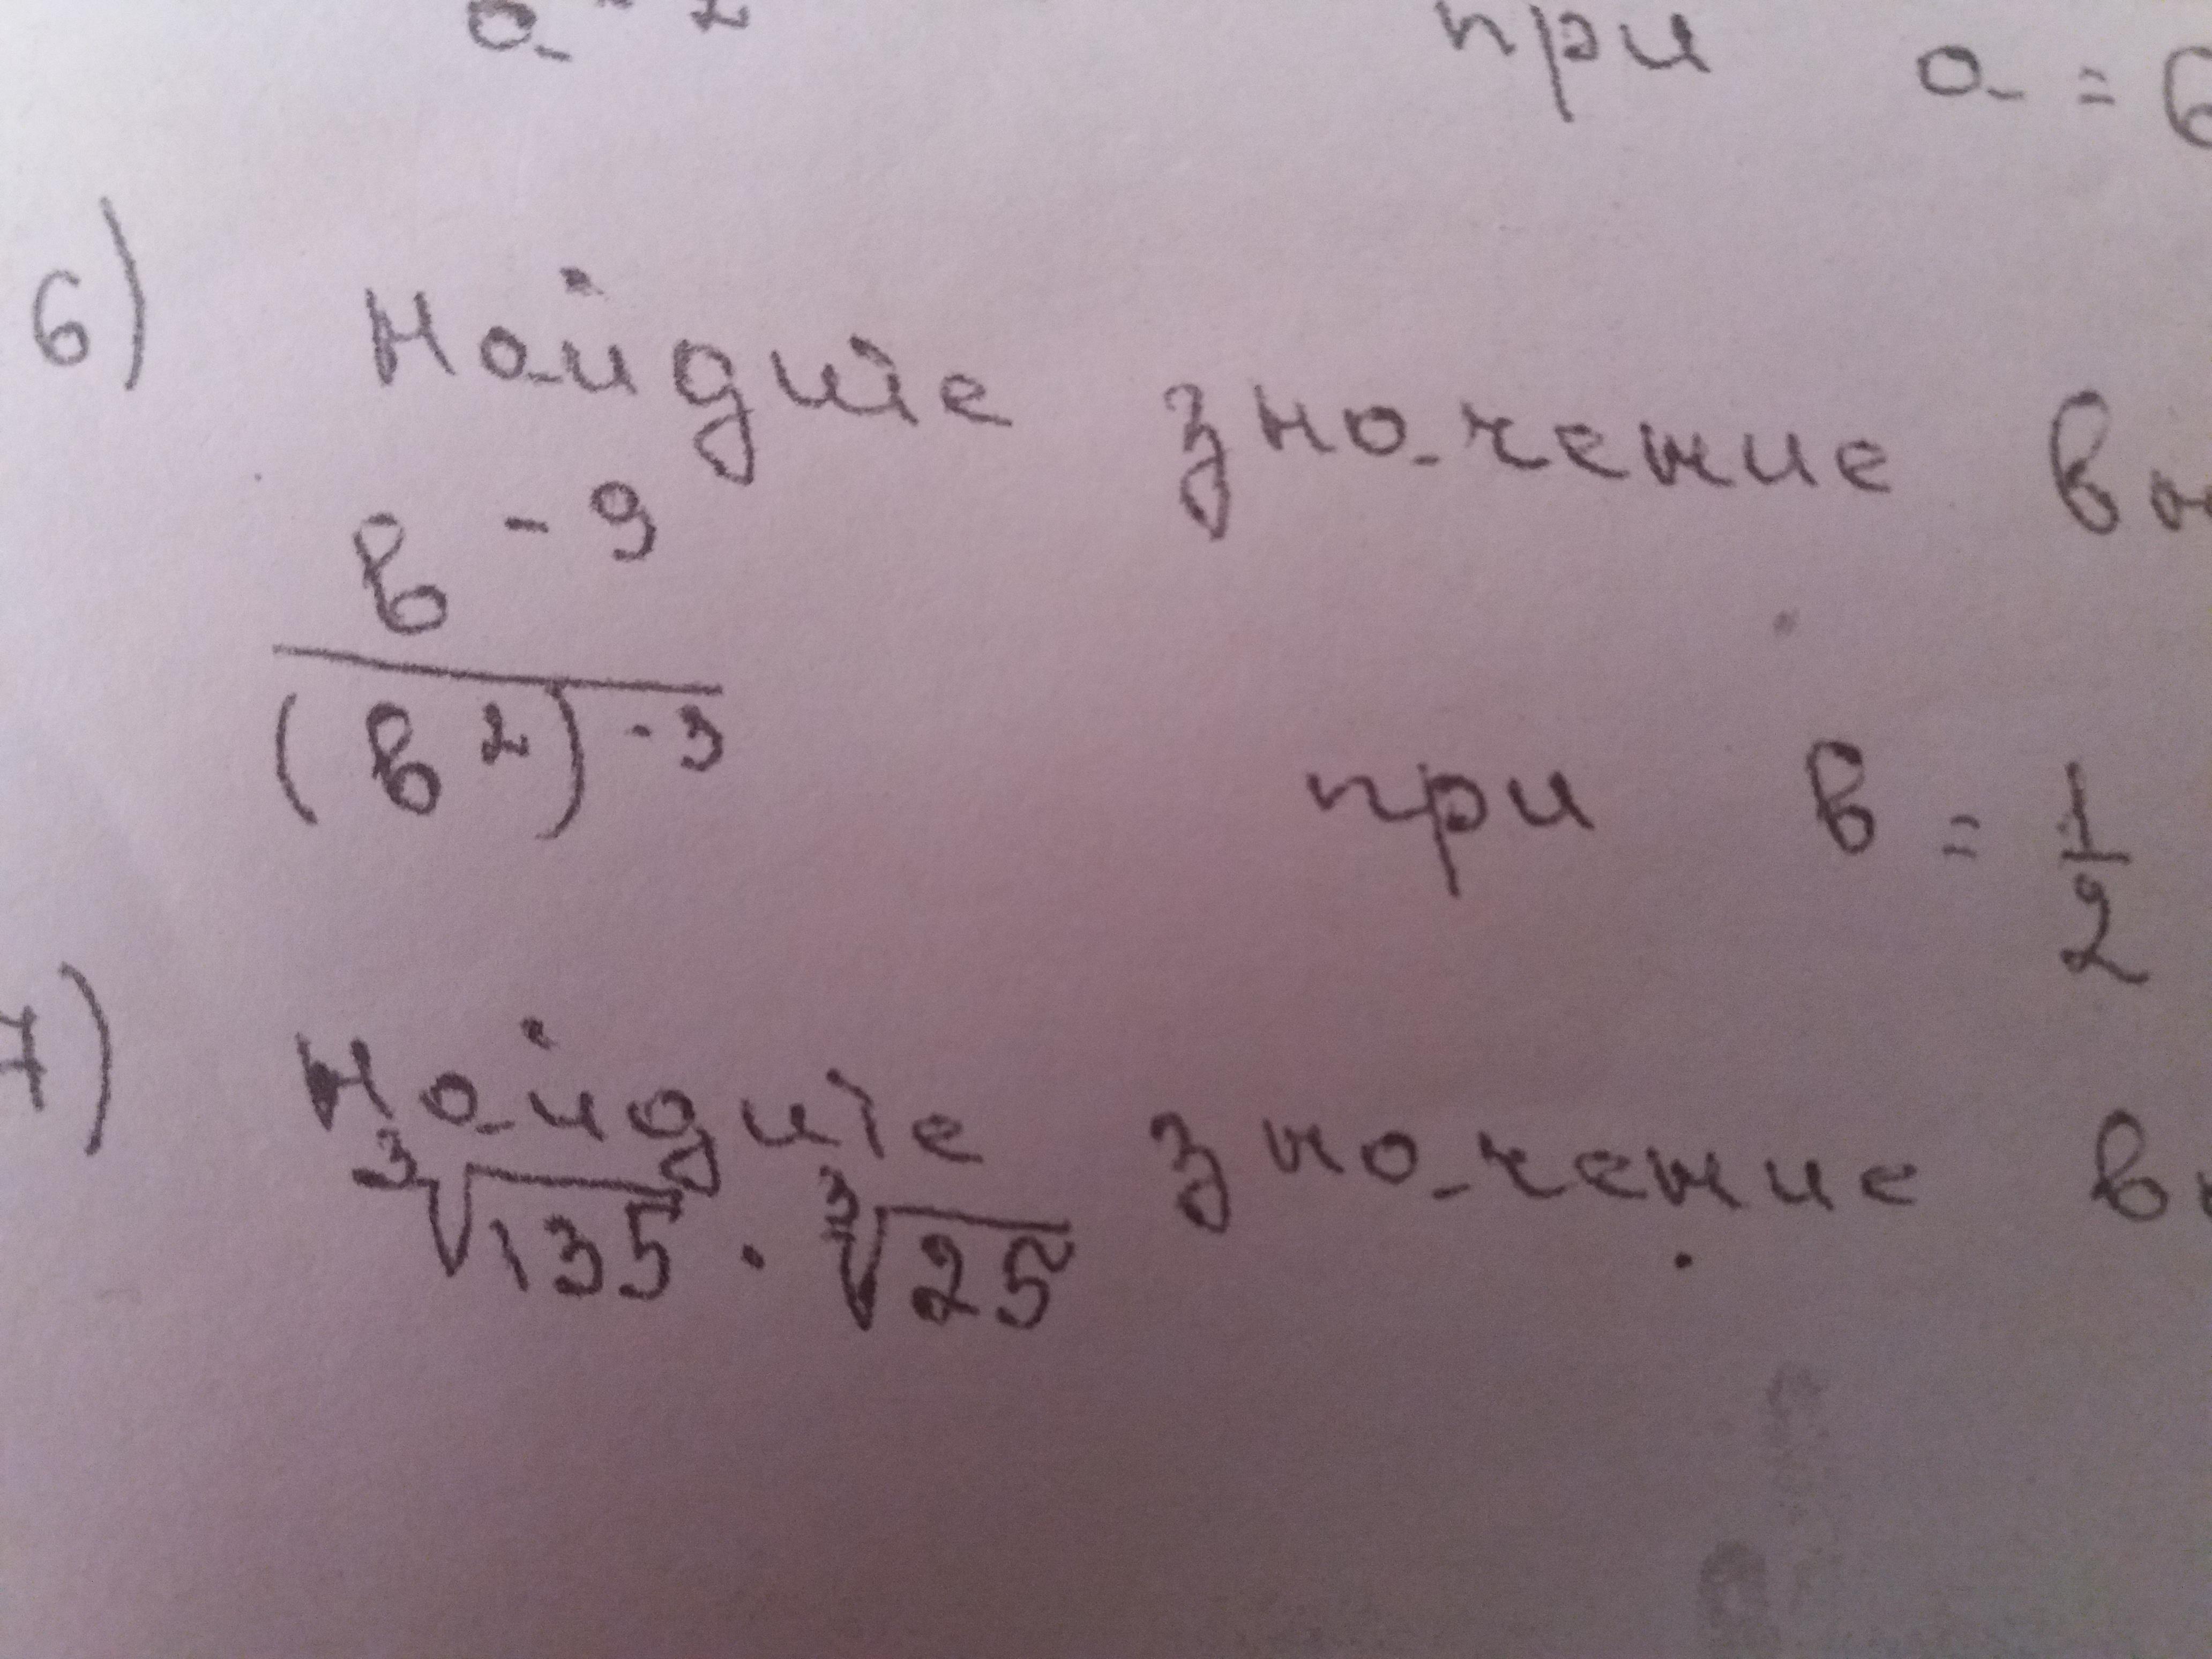 a⁻² при a = 6
6) Найдите значение
в⁻⁹
(в²)⁻³ при в = 1/2
7) Найдите значение
∛135 · ∛25